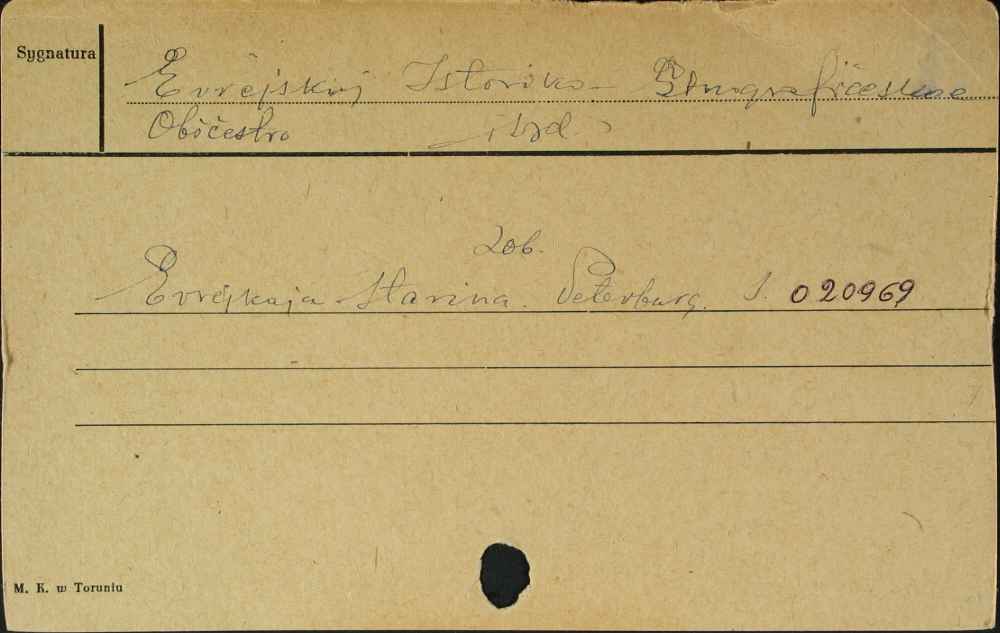 Sygnatura
Evrejskij Istoriko-Etnografičeskoe
Obščestvo (izd.)
Zob.
Evrejskaja Starina. Peterburg. S. 020969
M. K. w Toruniu